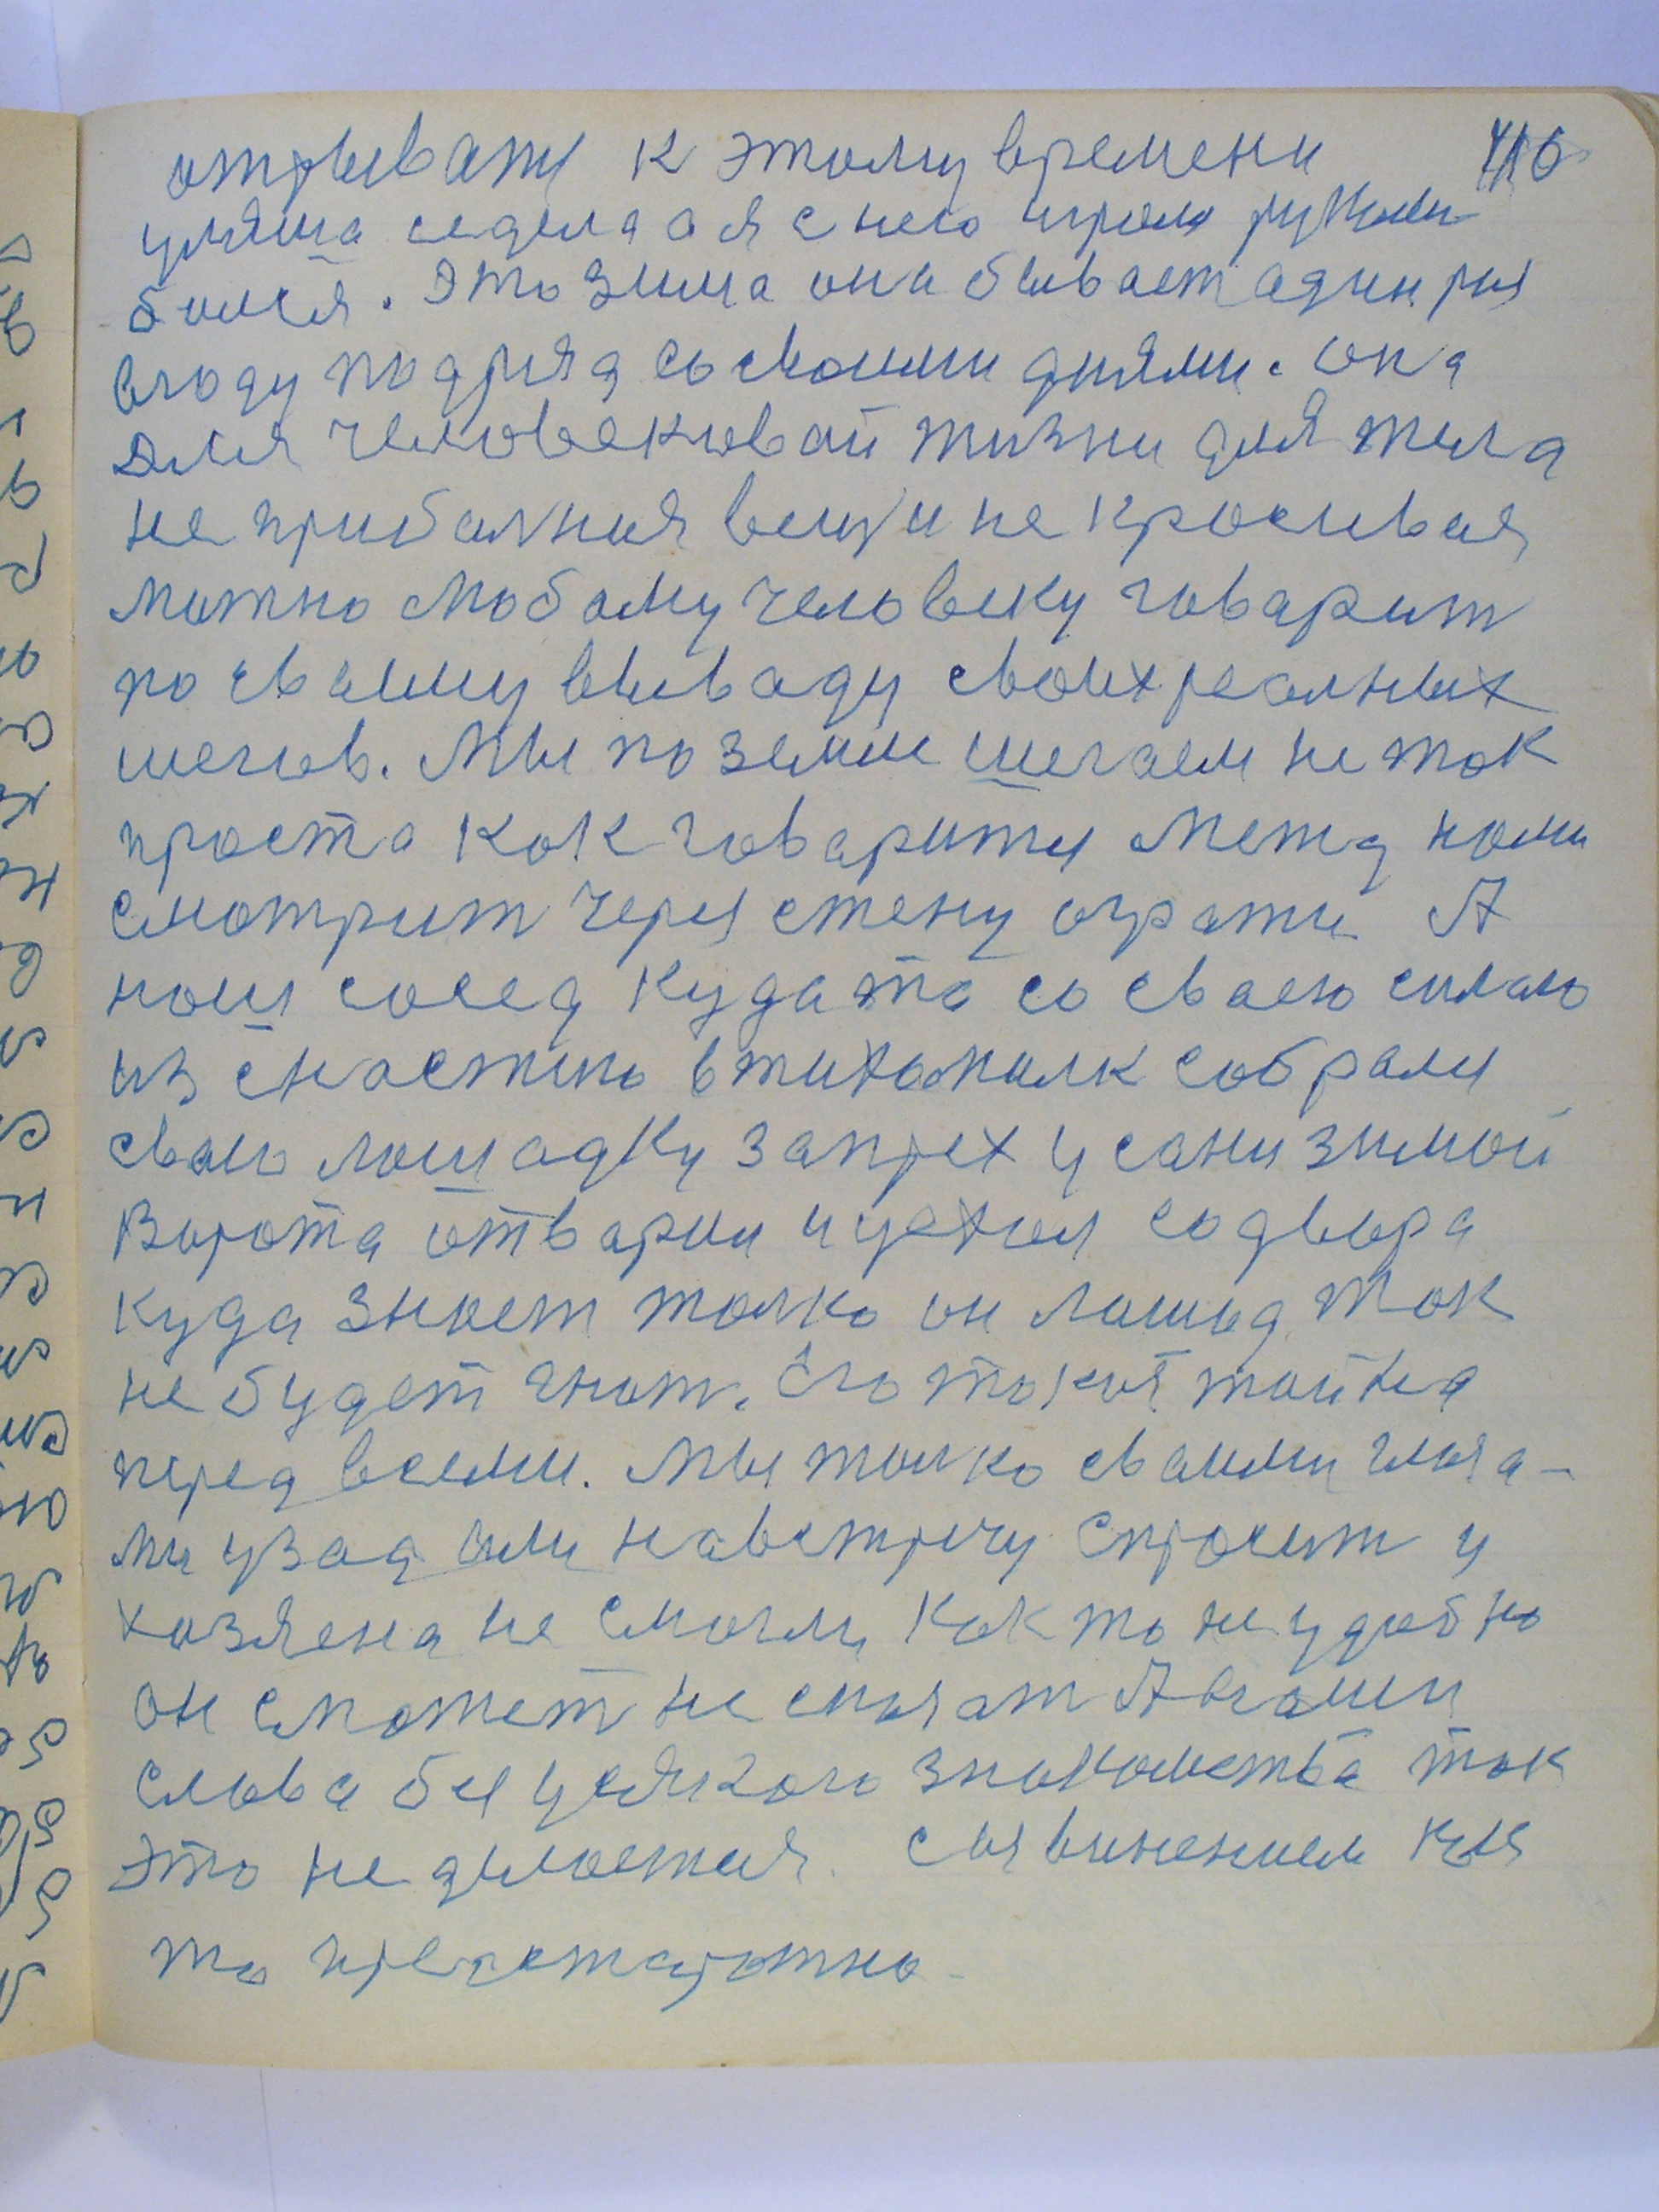 отрывать к этому времени 416
уляша седела а я с нею играл руками
бился. Это зима она бывает адин раз
вгоду подряд со своими днями. она
для человековай жизни для тела
не прибалния вещ и не красивая
можно любому человеку говарит
по сваиму вываду своих реалных
шегов. Мы по земле шегаем не так
проста как говаритця межд нами
смотрит через стену играти А
наш сосед куда та со сваею силаю
из снастию втихомилк собрали
сваю лошадку запрех у сани зимой
Ворота отварил и уехал содвора
куда знает толко он лошад так
не будет знат. Его такая тайна
перед всеми. Мы толко сваими глаза-
ми узад или навстречу спросит у
хозяена не смогли как то не удобно
он сможет не сказат А вгоши
слова без усякого знакомства так
это не делается. с извинением как
то